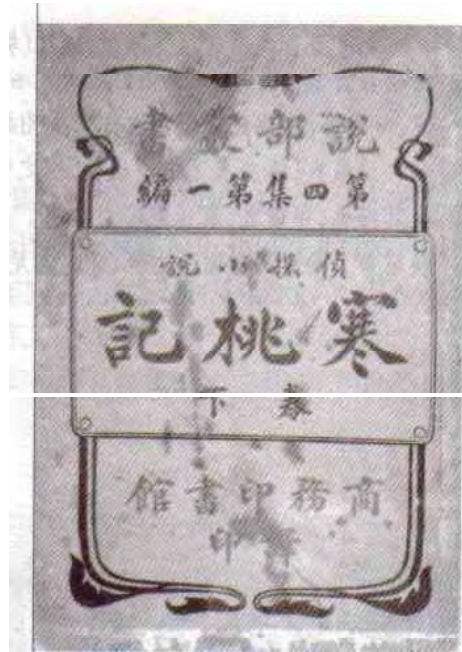 說部叢書
第四集第一編
偵探小說
寒桃記
卷下
商務印書館
印